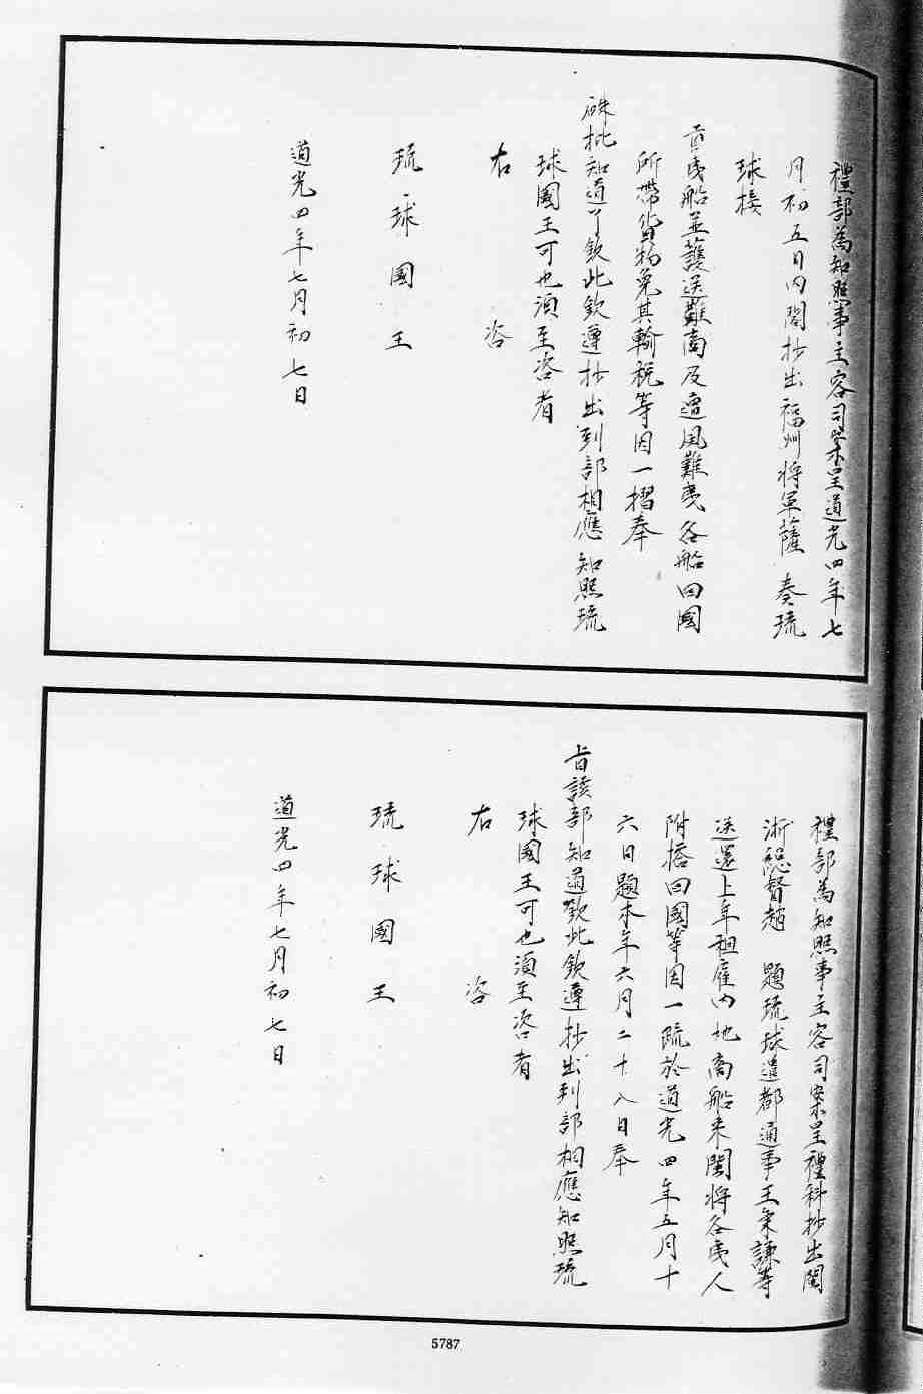 禮部為知照事主客司案呈道光四年七
月初五日內閣抄出福州將軍薩 奏琉
球接
貢夷船並護送難商及遭風難夷各船回國
所帶貨物免其輸稅等因一摺奉
硃批知道了欽此欽遵抄出到部相應知照琉
球國王可也須至咨者
右 咨
琉球國王
道光四年七月初七日
禮部為知照事主客司案呈禮科抄出閩
浙總督趙 題琉球遣都通事王秉謙等
送還上年租雇內地商船來閩將各夷人
附搭回國等因一疏於道光四年五月十
六日題本年六月二十八日奉
旨該部知道欽此欽遵抄出到部相應知照琉
球國王可也須至咨者
右 咨
琉球國王
道光四年七月初七日
5787